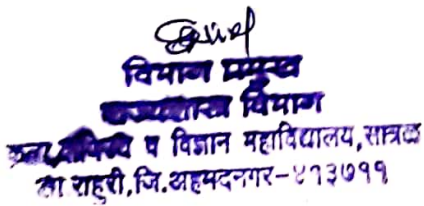 विभाग प्रमुख
राज्यशास्त्र विभाग
कला, वाणिज्य व विज्ञान महाविद्यालय, सात्रळ
ता राहुरी, जि. अहमदनगर-४१३७११